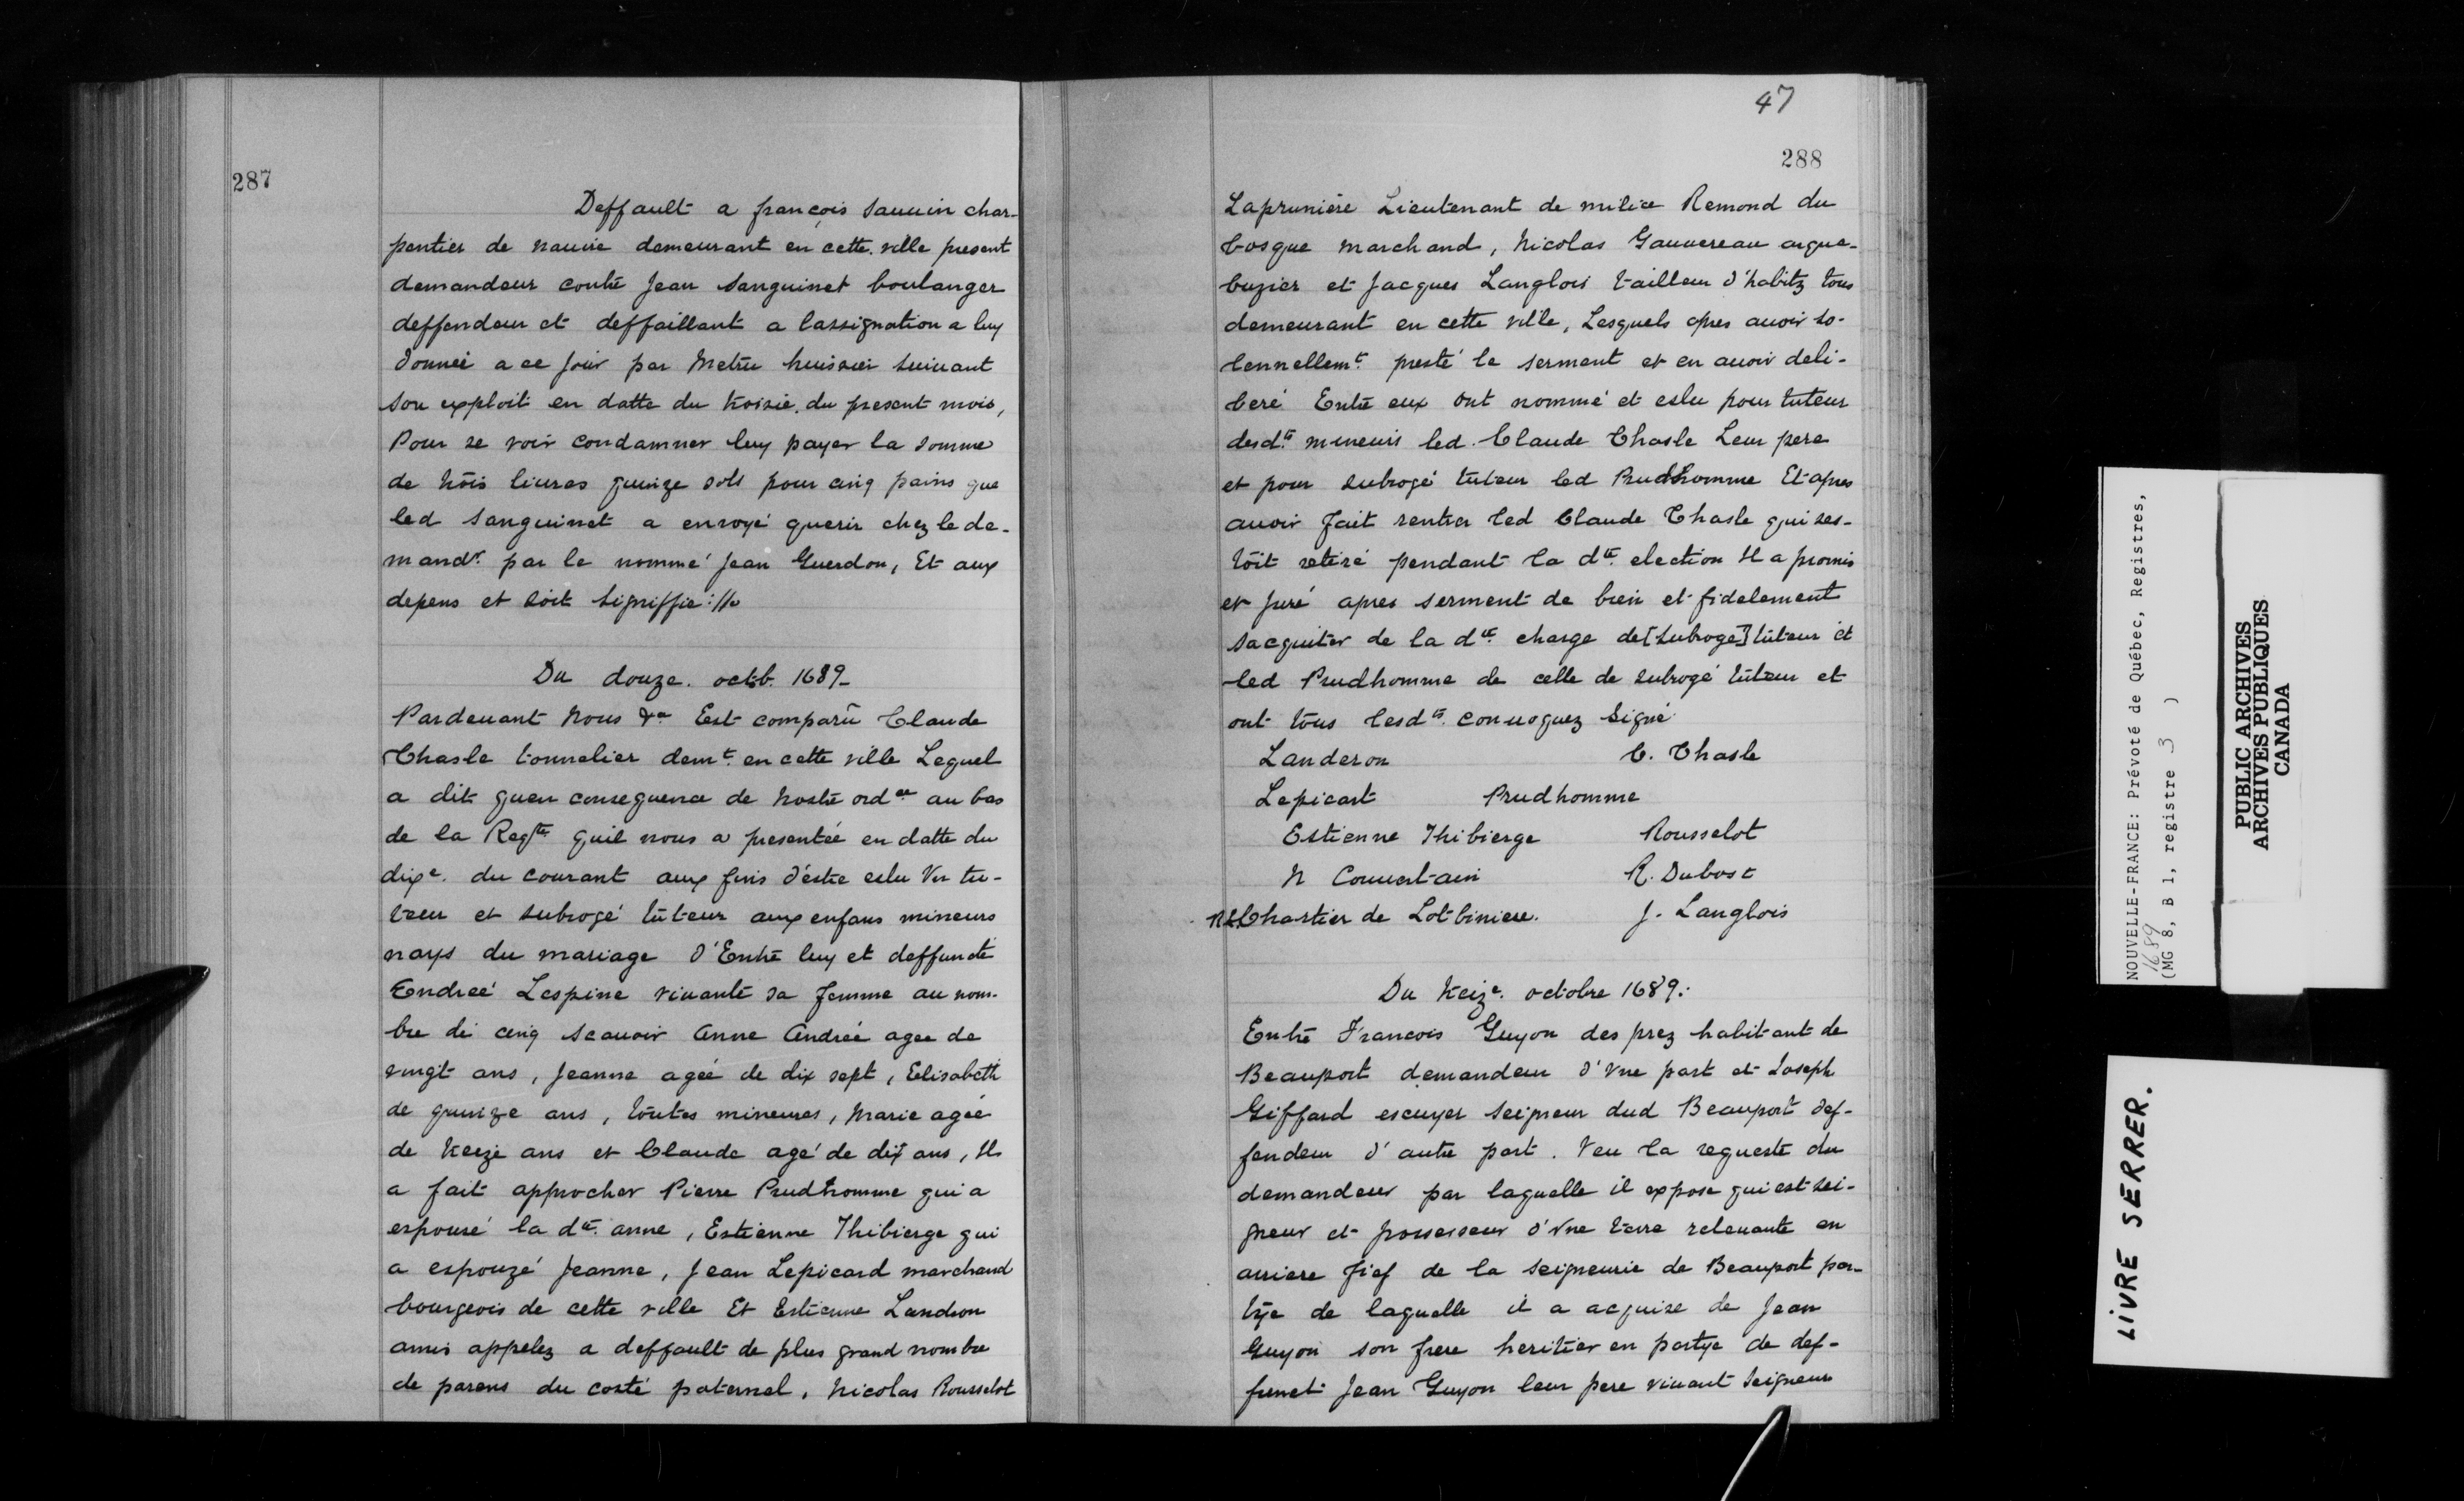 287
Deffault a françois Sauuin char-
pentier de nauire demeurant en cette ville present
demandeur contre Jean Sanguinet boulanger
deffendeur et deffaillant a lassignation a luy
donneé a ce jour par Metru huissier suiuant
son exploit en datte du troisie. du present mois,
Pour se voir condamner luy payer la somme
de trois liures quinze sols pour cinq pains que
led Sanguinet a envoyé querir chez le de-
mandr. par le nommé Jean Guerdon, Et aux
depens et soit signiffié://.
Du douze. octob. 1689-
Pardeuant Nous &a Est comparu Claude
Chasle tonnelier demt. en cette ville Lequel
a dit quen consequence de nostre ordce au bas
de la Reqte quil nous a presentée en datte du
dixe. du courant aux fins d'estre eslu Vn tu-
teur et subrogé tuteur aux enfans mineurs
nays du mariage d'Entre luy et deffuncte
Endreé Lespine viuante sa femme au nom-
bre de cinq scauoir Anne Andrée agee de
vingt ans, Jeanne ageé de dix sept, Elisabeth
de quinze ans, toutes mineures, Marie ageé
de treize ans et Claude agé de dix ans, Il
a fait approcher Pierre Prudhomme qui a
espousé la dte. anne, Estienne Thibierge qui
a espouzé Jeanne, Jean Lepicard marchand
bourgeois de cette ville Et Estienne Landron
amis appelez a deffault de plus grand nombre
de parens du costé paternel, Nicolas Rousselot
47
288
Lapruniere Lieutenant de milice Remond du
bosque marchand, Nicolas Gauuereau arque-
buzier et Jacques Langlois tailleur d'habitz tous
demeurant en cette ville, Lesquels apres auoir so-
lennellemt. presté le serment et en auoir deli-
beré Entre eux ont nommé et eslu pour tuteur
desdts mineurs led. Claude Chasle Leur pere
et pour subrogé tuteur led Prudhomme Et apres
auoir fait rentrer led Claude Chasle qui ses-
toit retiré pendant la dte. election Il a promis
et juré apres serment de bien et fidelement
sacquiter de la dte. charge de [subrogé] tuteur et
led Prudhomme de celle de subrogé tuteur et
ont tous lesdts. conuoquez signé
Landeron C. Chasle
Lepicart Prudhomme
Estienne Thibierge Rousselot
N Couuertain R. Dubosc
Chartier de Lotbiniere. J. Langlois
Du treize. octobre 1689:
Entre Francois Guyon des prez habitant de
Beauport demandeur d'Vne part et Joseph
Giffard escuyer seigneur dud Beauport def-
fendeur d'autre part. Veu la requeste du
demandeur par laquelle il expose qui est sei-
gneur et possesseur d'Vne terre releuante en
arriere fief de la seigneurie de Beauport par-
tye de laquelle il a acquise de Jean
Guyon son frere heritier en partye de def-
funct Jean Guyon leur pere viuant seigneur
NOUVELLE-FRANCE: Prévoté de Québec, Registres,
1689
(MG 8, B 1, registre 3 )
PUBLIC ARCHIVES
ARCHIVES PUBLIQUES
CANADA
LIVRE SERRER.